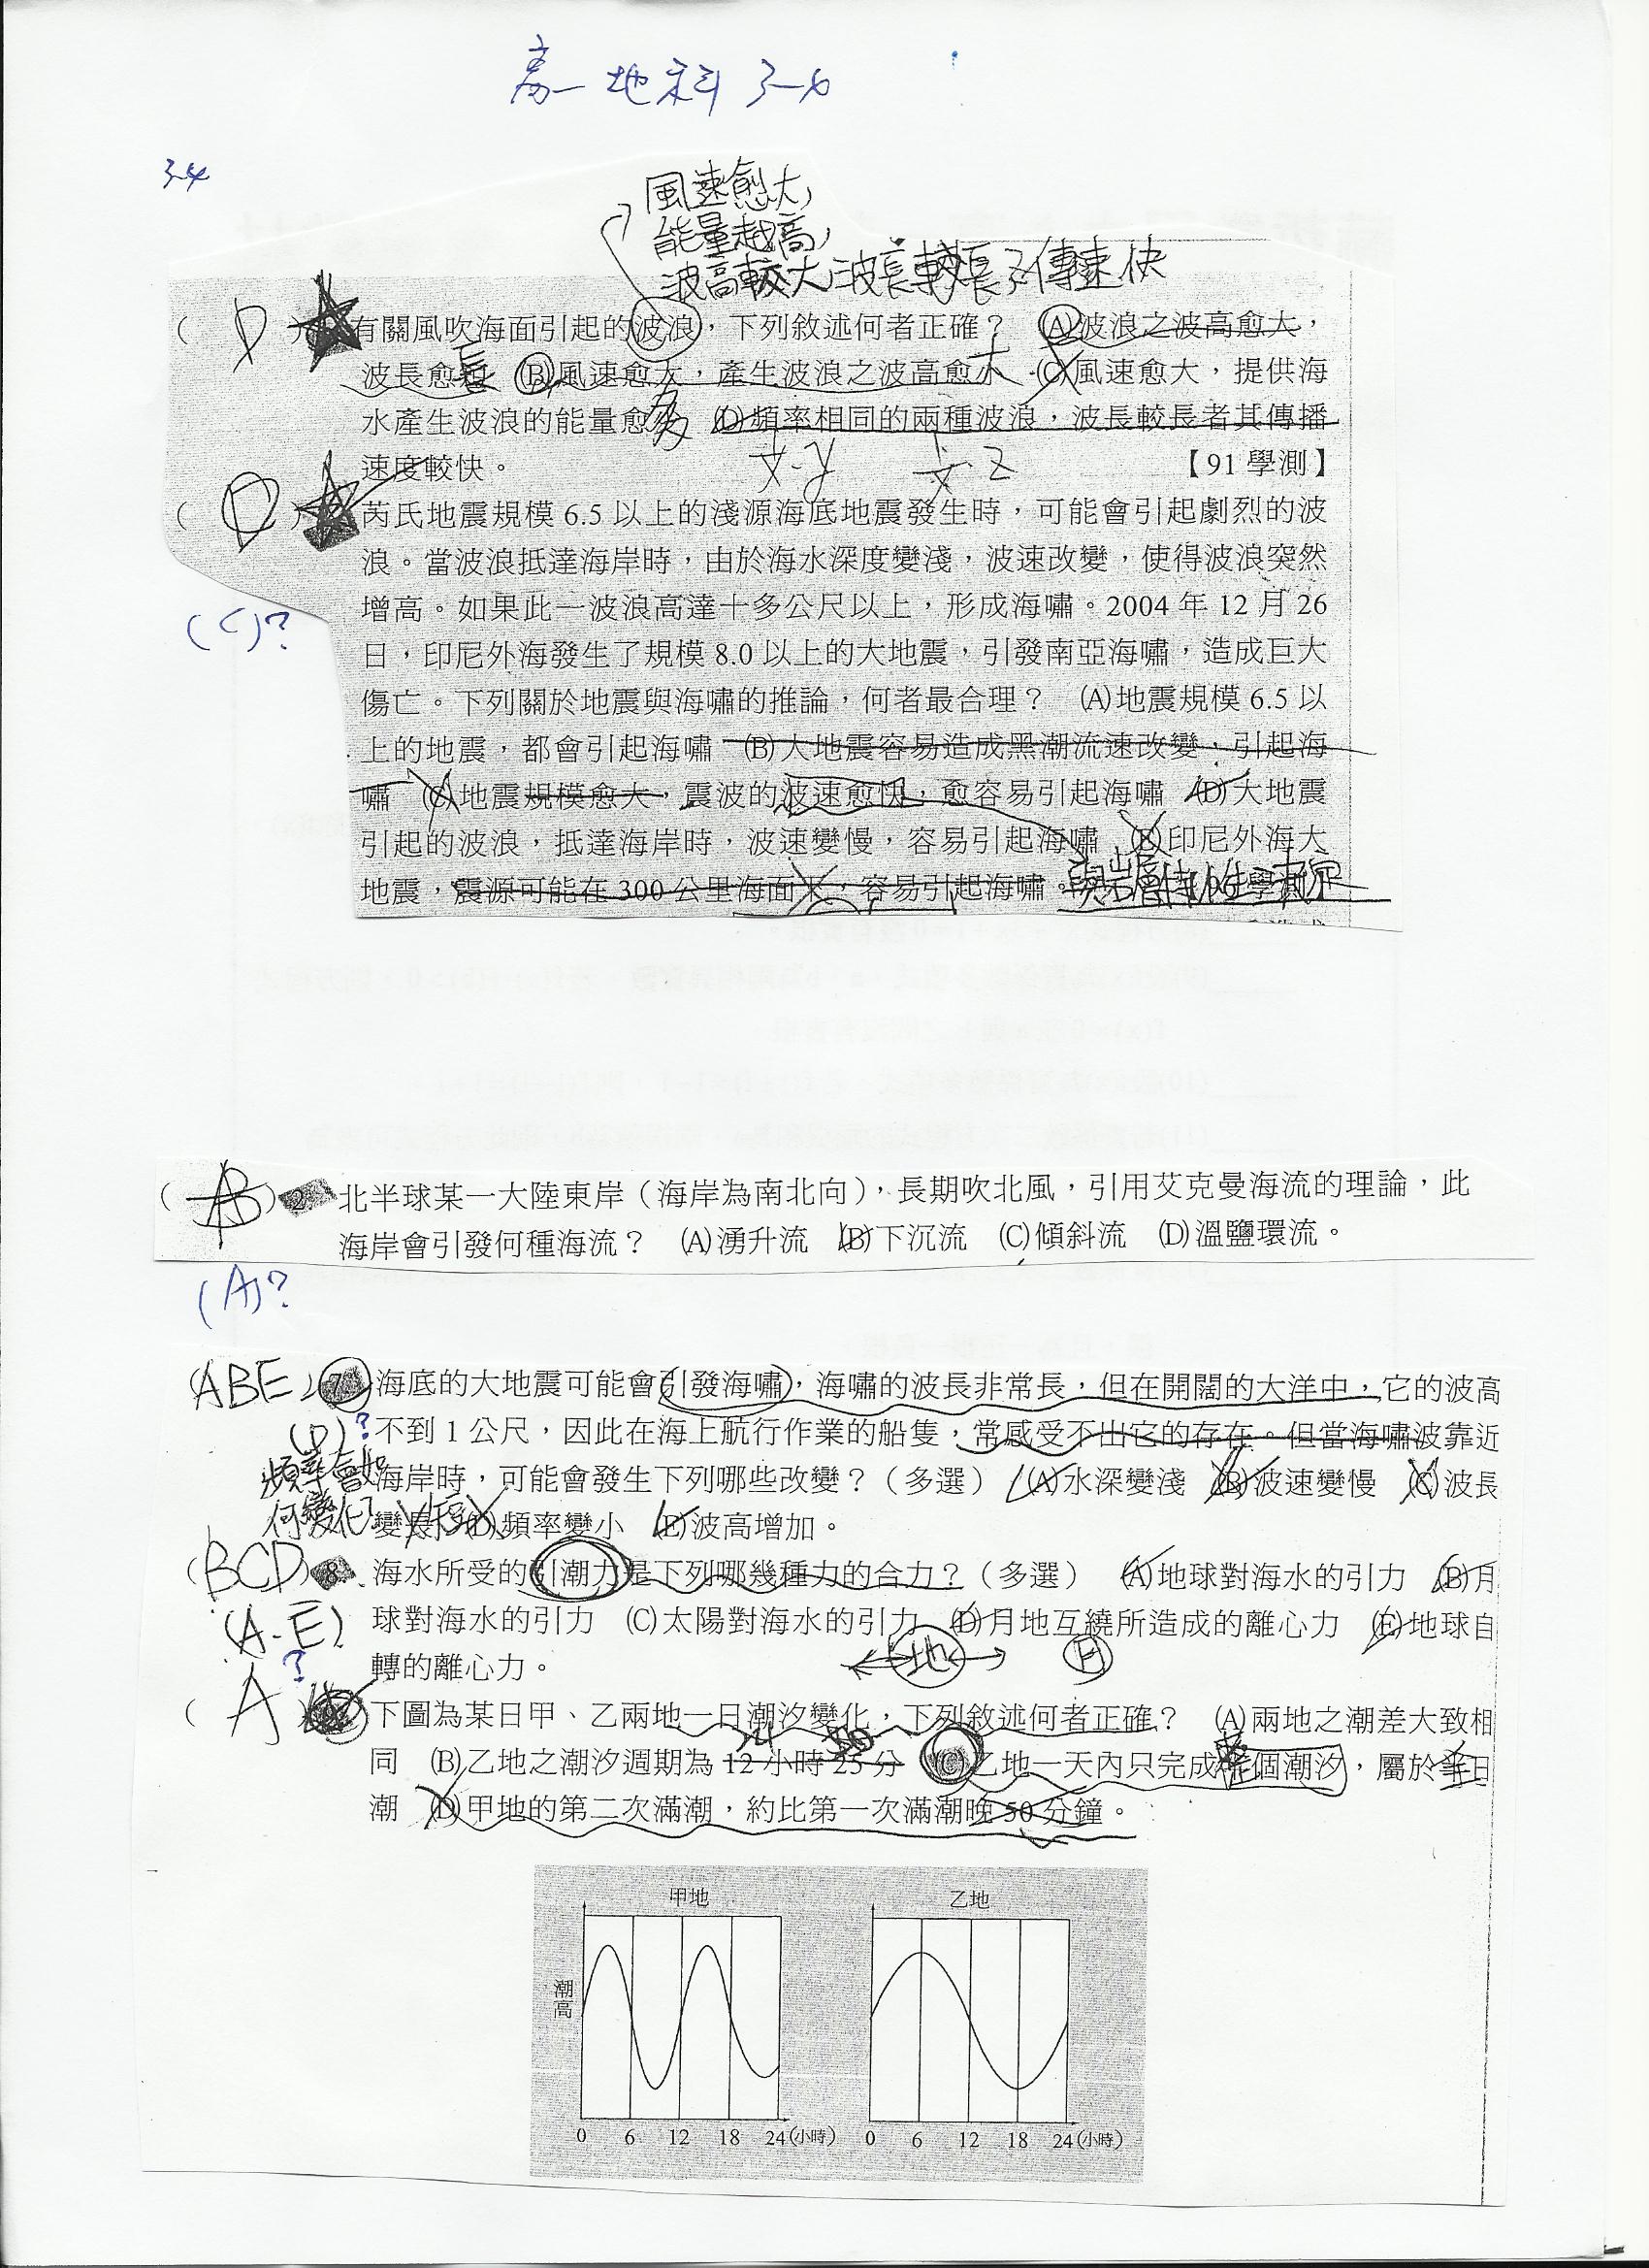 高一地科 3-4
3-4
風速愈大,
能量越高,
波高較大,波長較長,傳速快
( D ) 有關風吹海面引起的波浪,下列敘述何者正確? (A)波浪之波高愈大,
波長愈長 (B)風速愈大,產生波浪之波高愈大 (C)風速愈大,提供海
水產生波浪的能量愈多 (D)頻率相同的兩種波浪,波長較長者其傳播
速度較快。 【91 學測】
( D ) 芮氏地震規模 6.5 以上的淺源海底地震發生時,可能會引起劇烈的波
浪。當波浪抵達海岸時,由於海水深度變淺,波速改變,使得波浪突然
增高。如果此一波浪高達十多公尺以上,形成海嘯。2004 年 12 月 26
(C)?
日,印尼外海發生了規模 8.0 以上的大地震,引發南亞海嘯,造成巨大
傷亡。下列關於地震與海嘯的推論,何者最合理? (A)地震規模 6.5 以
上的地震,都會引起海嘯 (B)大地震容易造成黑潮流速改變,引起海
嘯 (C)地震規模愈大,震波的波速愈快,愈容易引起海嘯 (D)大地震
引起的波浪,抵達海岸時,波速變慢,容易引起海嘯 (E)印尼外海大
地震,震源可能在 300 公里海面下,容易引起海嘯。
( B ) 2. 北半球某一大陸東岸(海岸為南北向),長期吹北風,引用艾克曼海流的理論,此
海岸會引發何種海流? (A)湧升流 (B)下沉流 (C)傾斜流 (D)溫鹽環流。
(A)?
(ABE) 7. 海底的大地震可能會引發海嘯,海嘯的波長非常長,但在開闊的大洋中,它的波高
(D)? 不到 1 公尺,因此在海上航行作業的船隻,常感受不出它的存在。但當海嘯波靠近
頻率會如 海岸時,可能會發生下列哪些改變?(多選) (A)水深變淺 (B)波速變慢 (C)波長
何變化? 變長 (D)頻率變小 (E)波高增加。
(BCD) 8. 海水所受的引潮力是下列哪幾種力的合力?(多選) (A)地球對海水的引力 (B)月
(A.E) 球對海水的引力 (C)太陽對海水的引力 (D)月地互繞所造成的離心力 (E)地球自
? 轉的離心力。
地 月
( A ) 下圖為某日甲、乙兩地一日潮汐變化,下列敘述何者正確? (A)兩地之潮差大致相
24 50
同 (B)乙地之潮汐週期為 12 小時 25 分 (C)乙地一天內只完成一個潮汐,屬於全日
潮 (D)甲地的第二次滿潮,約比第一次滿潮晚 50 分鐘。
甲地 乙地
潮高
0 6 12 18 24(小時) 0 6 12 18 24(小時)